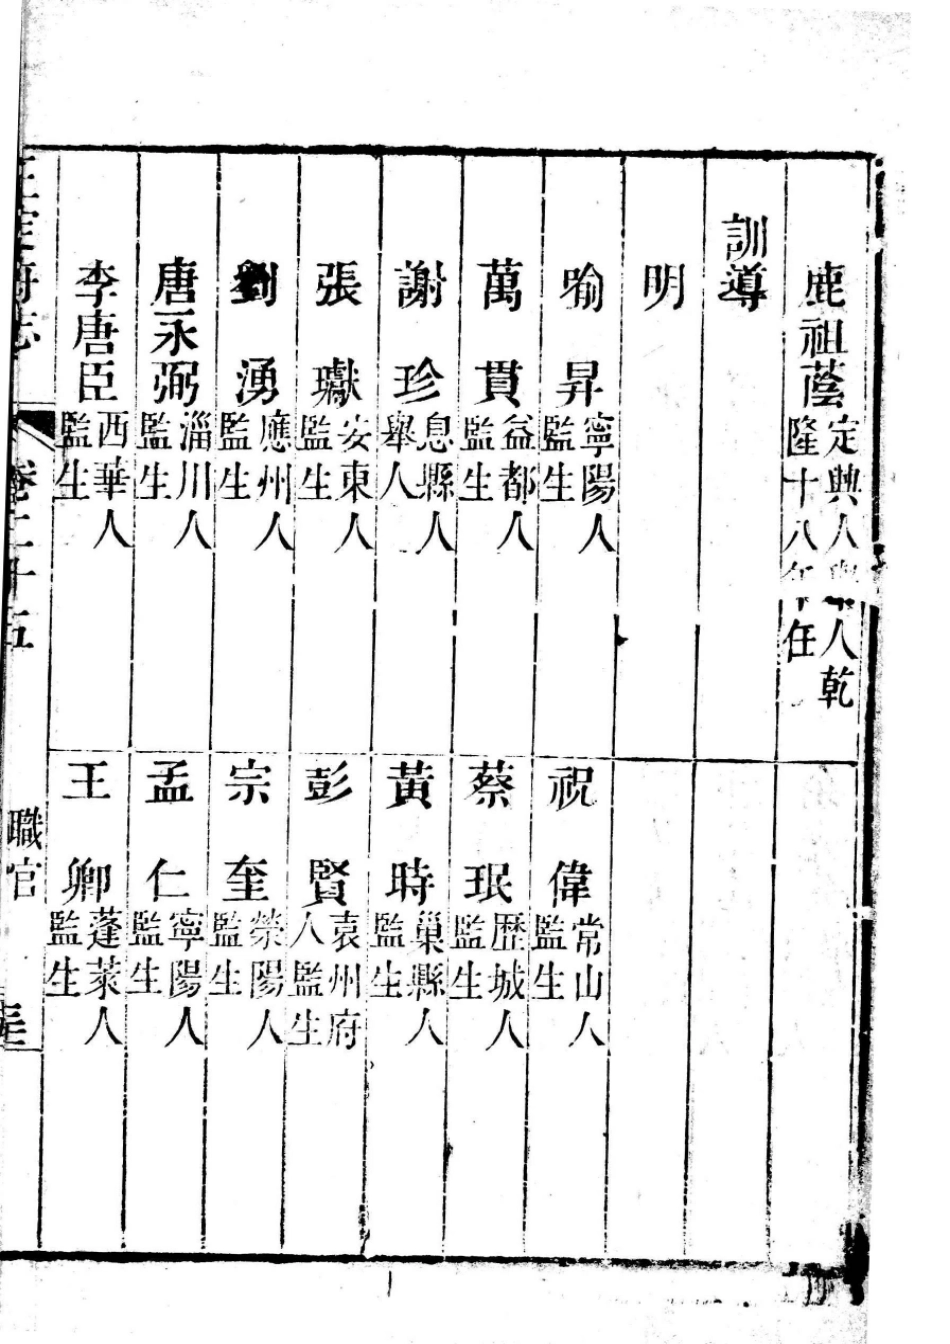 鹿祖蔭 定興人舉人乾隆十八年任
訓導
明
喻昇 寧陽人監生
祝偉 常山人監生
萬貫 益都人監生
蔡珉 歷城人監生
謝珍 息縣人舉人
黃時 巢縣人監生
張瓛 安東人監生
彭賢 袁州府人監生
劉湧 應州人監生
宗奎 榮陽人監生
唐永弼 淄川人監生
孟仁 寧陽人監生
李唐臣 西華人監生
王卿 蓬萊人監生
正定府志 卷二十五 職官